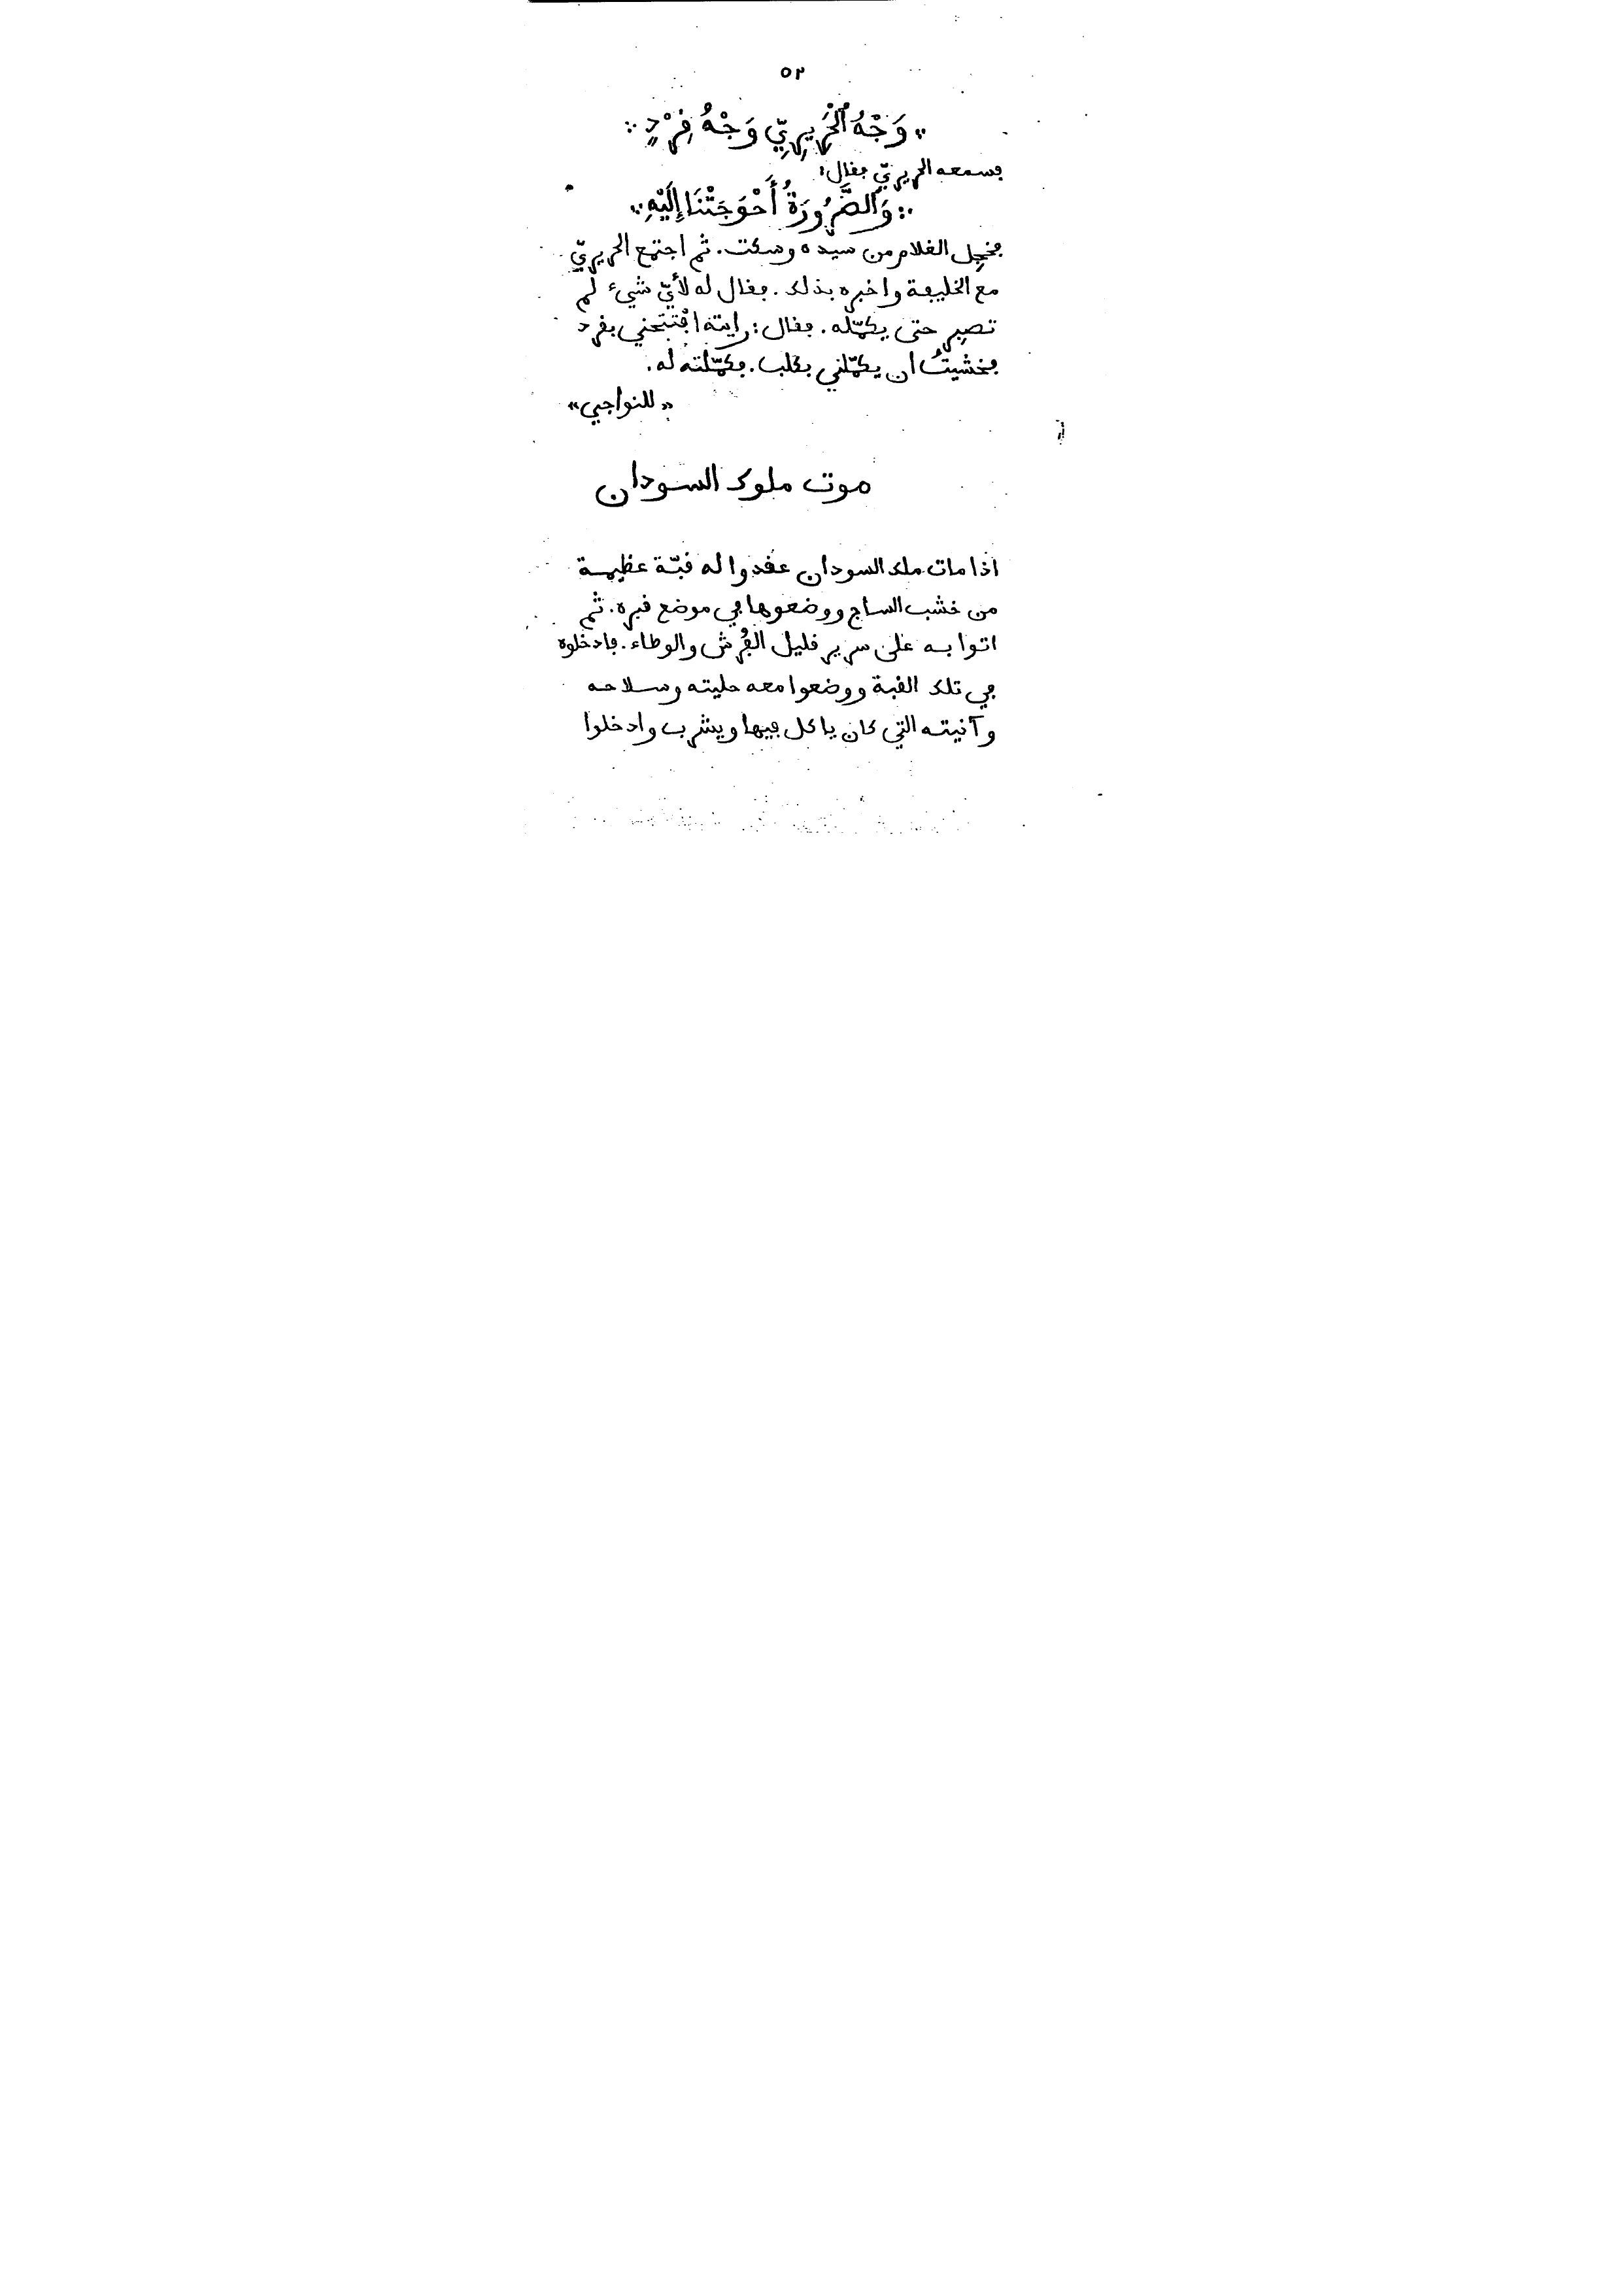 ٥٢
∴ وَجْهُ ٱلْحَرِيرِيِّ وَجْهُ قِرْدٍ ∴
فسمعه الحريريّ فقال:
∴ وَٱلضَّرُورَةُ أَحْوَجَتْنَا إِلَيْهِ ∴
فخجِل الغلام من سيده وسكت. ثم اجتمع الحريريّ
مع الخليفة واخبره بذلك. فقال له لأيّ شيء لم
تصبِر حتى يكمّله. فقال: رايته افْتتحني بقرد
فخشيتُ ان يكمّلني بكلب. فكمّلته له.
«للنواجي»
موت ملوك السودان
اذا مات ملك السودان عقدوا له قبّة عظيمة
من خشب الساج ووضعوها في موضع قبره. ثم
اتوا به على سرير قليل الفُرش والوطاء. فادخلوه
في تلك القبة ووضعوا معه حليته وسلاحه
وآنيته التي كان ياكل فيها ويشرب وادخلوا